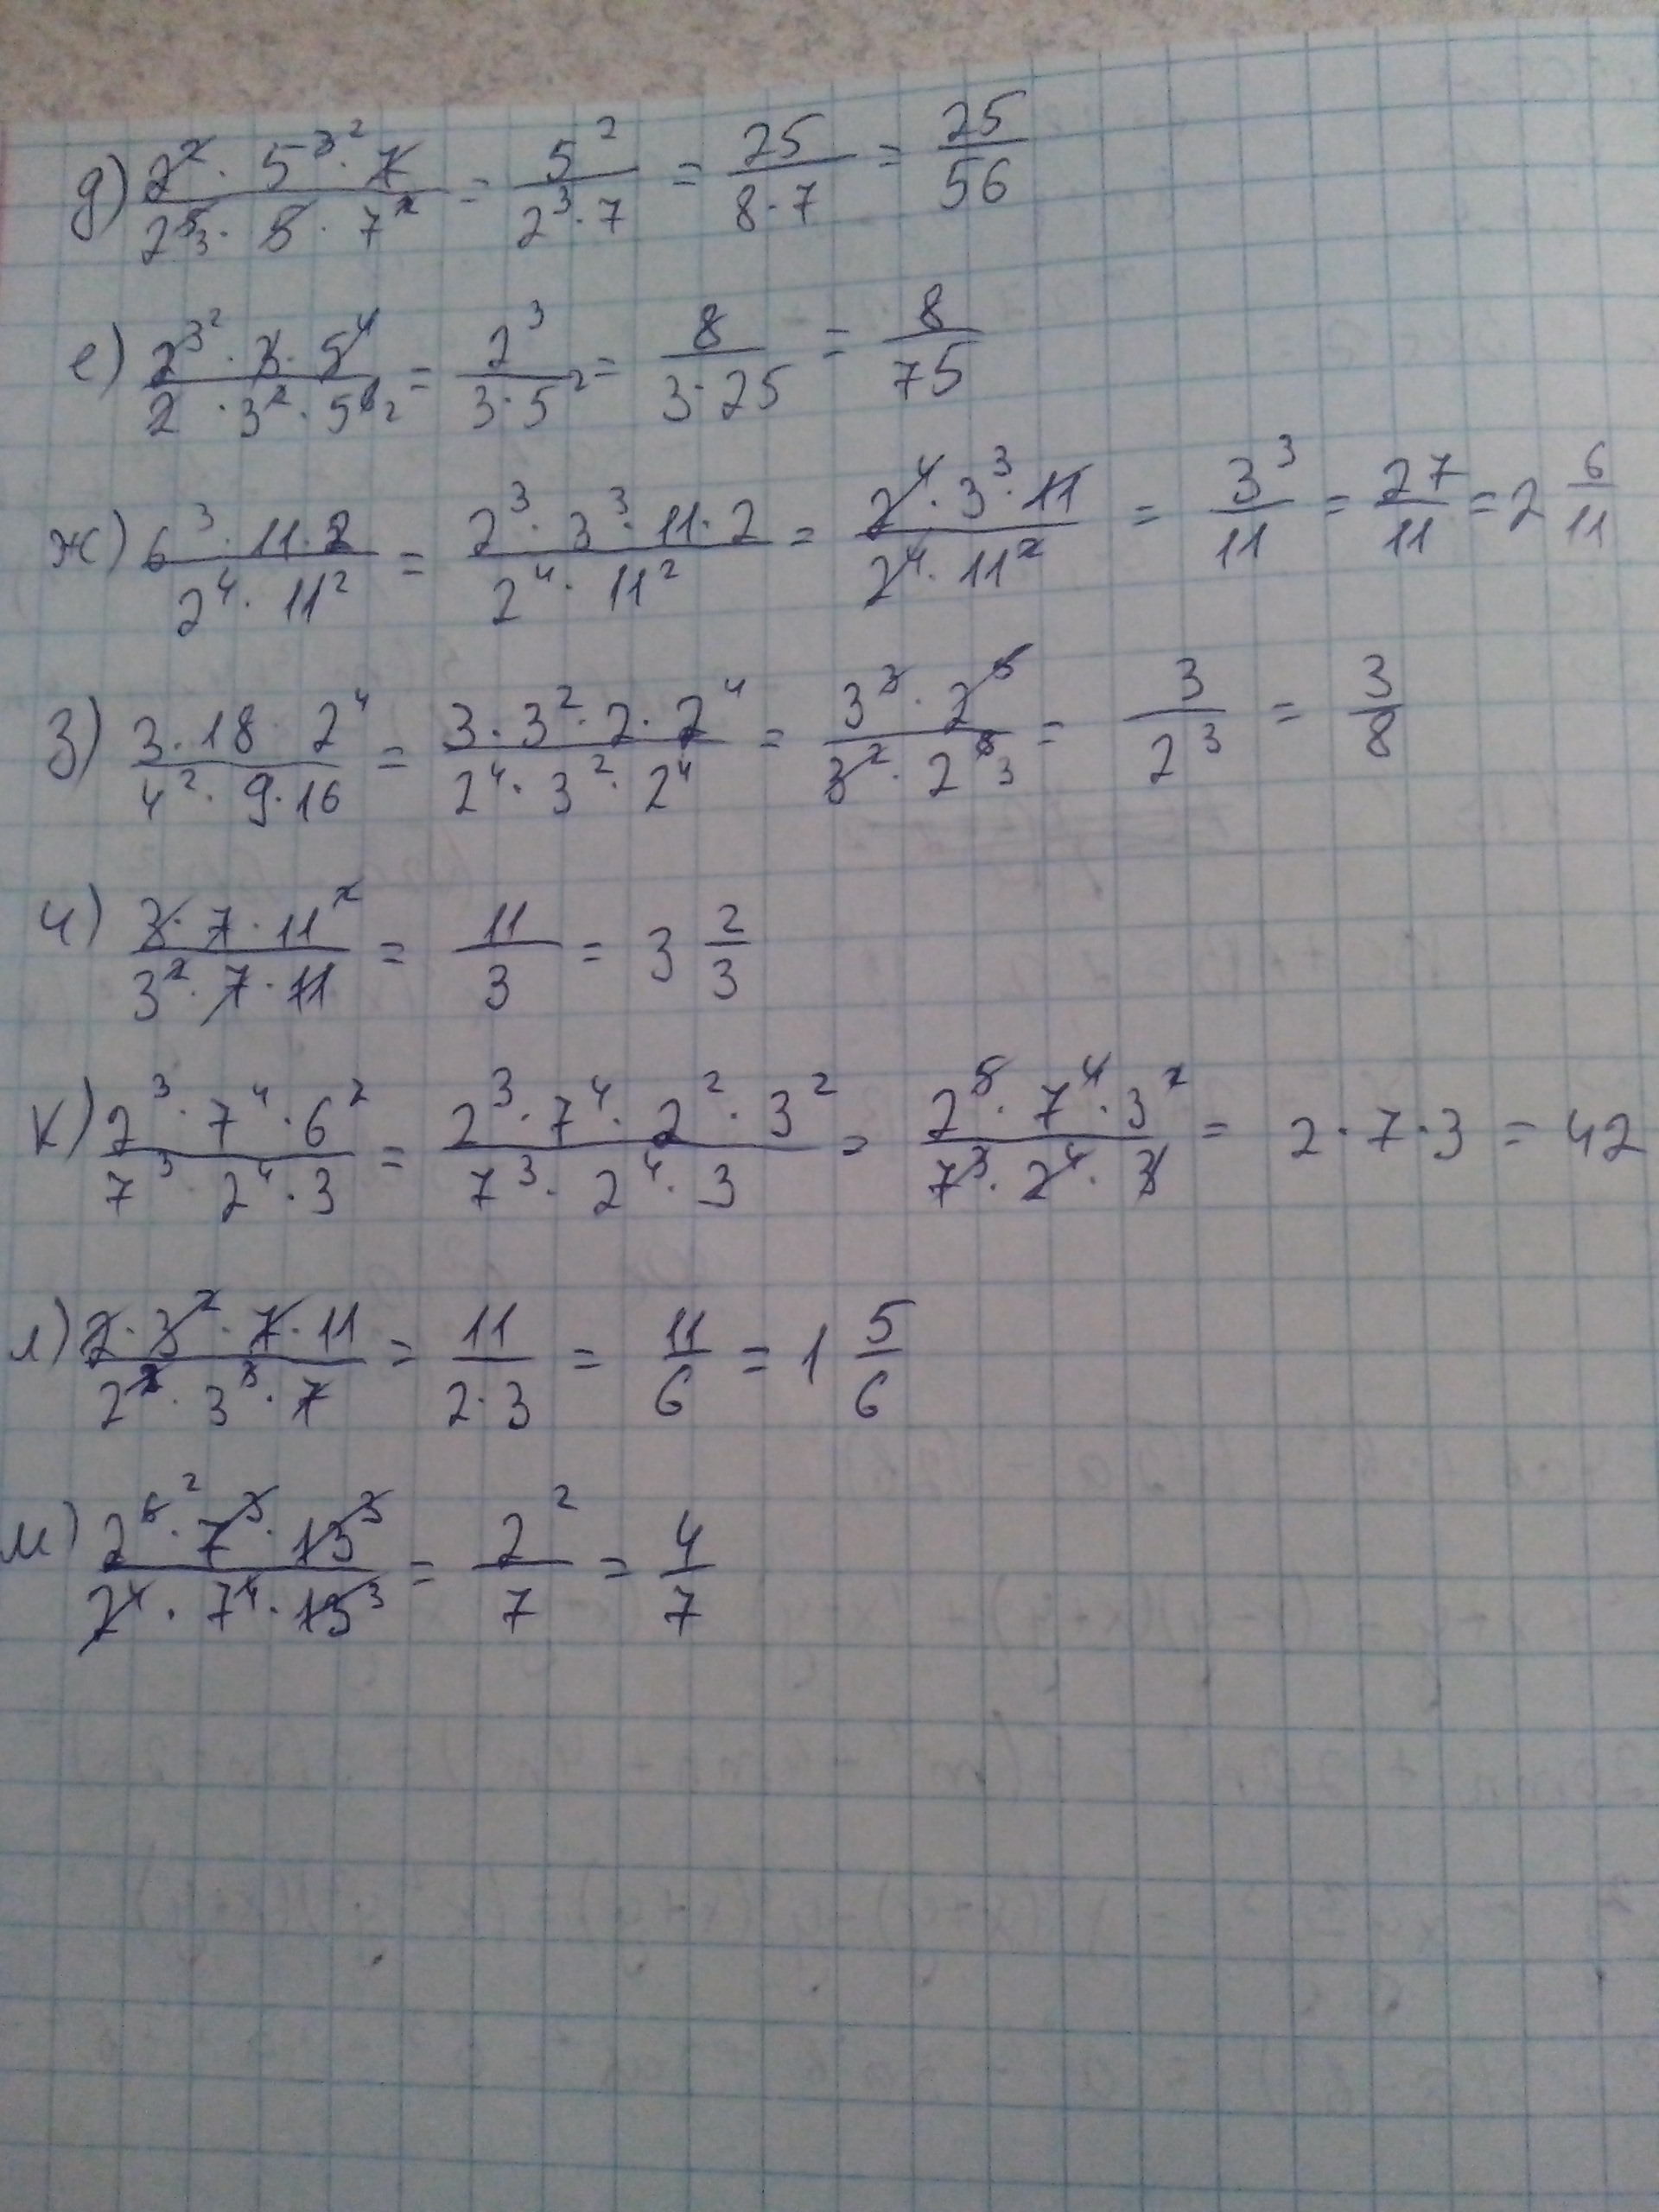 д) 2² · 5³ ² · 7 / 2⁵ ₃ · 5 · 7² = 5² / 2³ · 7 = 25 / 8 · 7 = 25/56
е) 2³ ² · 3 · 5⁴ / 2 · 3² · 5⁶ ₂ = 2³ / 3 · 5² = 8 / 3 · 25 = 8/75
ж) 6³ · 11 · 2 / 2⁴ · 11² = 2³ · 3³ · 11 · 2 / 2⁴ · 11² = 2⁴ · 3³ · 11 / 2⁴ · 11² = 3³ / 11 = 27/11 = 2 6/11
з) 3 · 18 · 2⁴ / 4² · 9 · 16 = 3 · 3² · 2 · 2⁴ / 2⁴ · 3² · 2⁴ = 3³ · 2⁵ / 3² · 2⁸ ₃ = 3 / 2³ = 3/8
и) 3 · 7 · 11² / 3² · 7 · 11 = 11/3 = 3 2/3
к) 2³ · 7⁴ · 6² / 7³ · 2⁴ · 3 = 2³ · 7⁴ · 2² · 3² / 7³ · 2⁴ · 3 = 2⁵ · 7⁴ · 3² / 7³ · 2⁴ · 3 = 2 · 7 · 3 = 42
л) 2 · 3² · 7 · 11 / 2² · 3³ · 7 = 11 / 2 · 3 = 11/6 = 1 5/6
м) 2⁶ ² · 7³ · 13³ / 2⁴ · 7⁴ · 13³ = 2² / 7 = 4/7